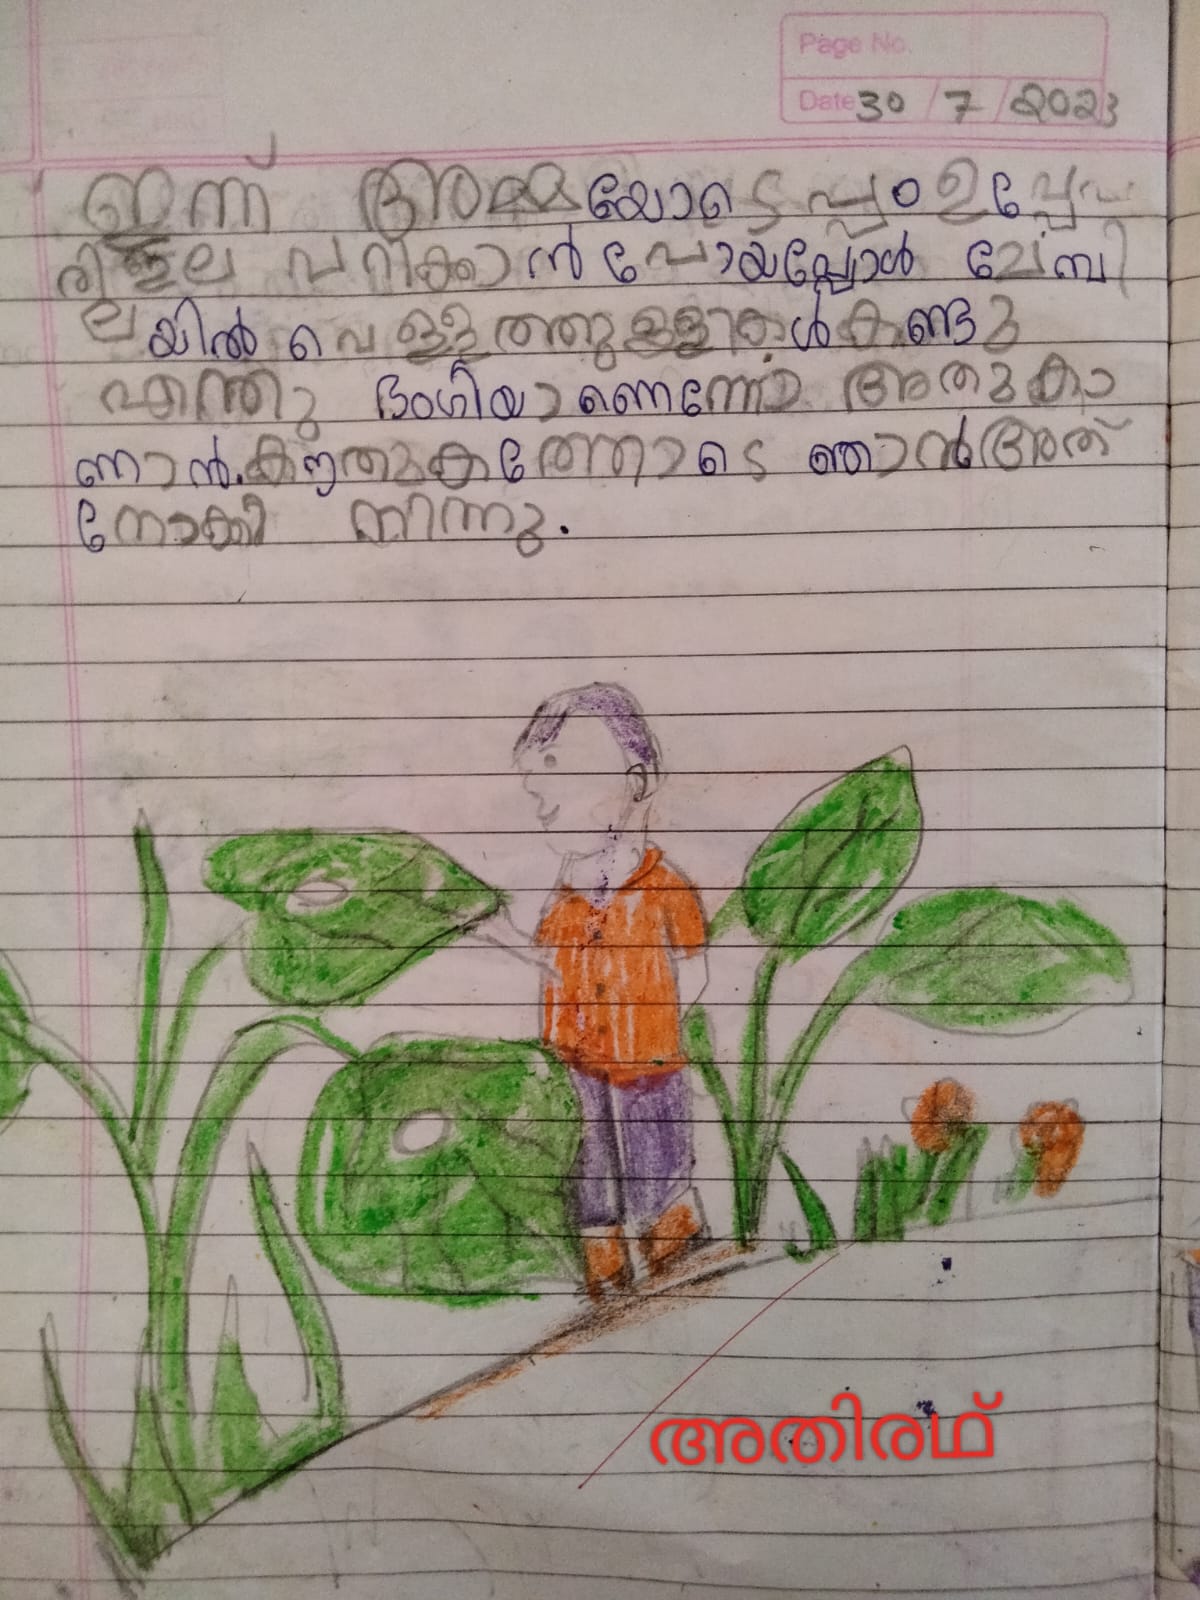 Page No.
Date 30/7/2023
ഇന്ന് അമ്മയോടൊപ്പം ഉപ്പേ
രിള്ളല പറിക്കാൻ പോയപ്പോൾ ചേമ്പി
ലയിൽ വെള്ളത്തുള്ളികൾ കണ്ടു
എന്തു ഭംഗിയാണെന്നോ അതുകാ
ണാൻ. കൗതുകത്തോടെ ഞാൻ അത്
നോക്കി നിന്നു.
അതിരഥ്